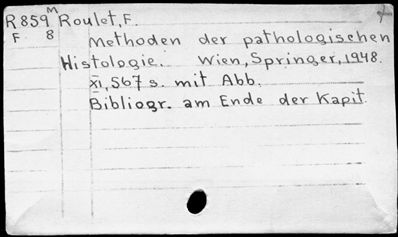 M
R 859 Roulet, F.
F 8
Methoden der pathologischen
Histologie. Wien, Springer, 1948.
XI, 567 s. mit Abb.
Bibliogr. am Ende der Kapit.